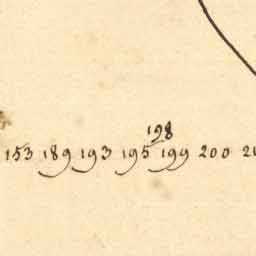 198
153 189 193 195 199 200